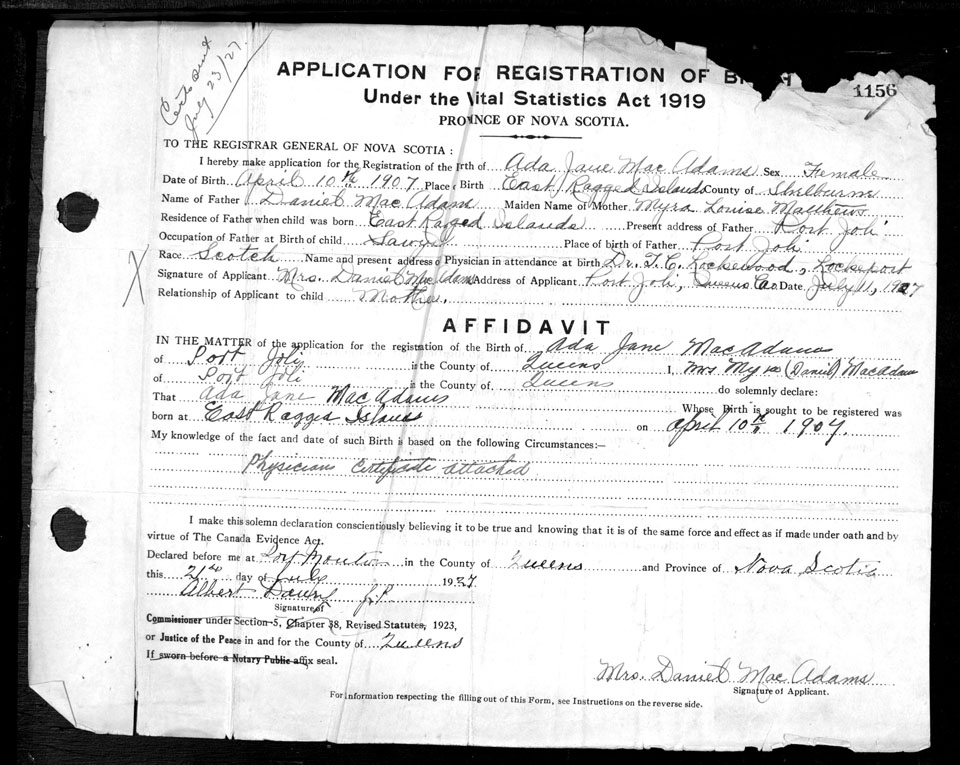 Cert sent
July 23/27.
APPLICATION FOR REGISTRATION OF B
1156
Under the Vital Statistics Act 1919
PROVINCE OF NOVA SCOTIA.
TO THE REGISTRAR GENERAL OF NOVA SCOTIA :
I hereby make application for the Registration of the Birth of Ada Jane Mac Adams Sex Female
Date of Birth April 10th 1907 Place of Birth East Ragged Islands County of Shelburne
Name of Father Daniel Mac Adam Maiden Name of Mother Myra Louise Matthews
Residence of Father when child was born East Ragged Islands Present address of Father Port Joli
Occupation of Father at Birth of child Place of birth of Father Port Joli
Race Scotch Name and present address of Physician in attendance at birth Dr. T. C. Lockewood, Lockeport
Signature of Applicant Mrs. Daniel MacAdam Address of Applicant Port Joli, Queens Co. Date July 11, 1927
Relationship of Applicant to child Mother.
AFFIDAVIT
IN THE MATTER of the application for the registration of the Birth of Ada Jane MacAdams
of Port Joli in the County of Queens I, Mrs Myra (Daniel) Macadam
of Port Joli in the County of Queens do solemnly declare:
That Ada Jane Mac Adams Whose Birth is sought to be registered was
born at East Ragged Islands on April 10th 1907.
My knowledge of the fact and date of such Birth is based on the following Circumstances:—
Physicians Certificate attached
I make this solemn declaration conscientiously believing it to be true and knowing that it is of the same force and effect as if made under oath and by
virtue of The Canada Evidence Act.
Declared before me at Port Mouton in the County of Queens and Province of Nova Scotia
this 21st day of July 1927
Albert J.P
Signature of
Commissioner under Section 5, Chapter 38, Revised Statutes, 1923,
or Justice of the Peace in and for the County of Queens
If sworn before a Notary Public affix seal.
Mrs. Daniel Mac Adams
Signature of Applicant.
For information respecting the filling out of this Form, see Instructions on the reverse side.